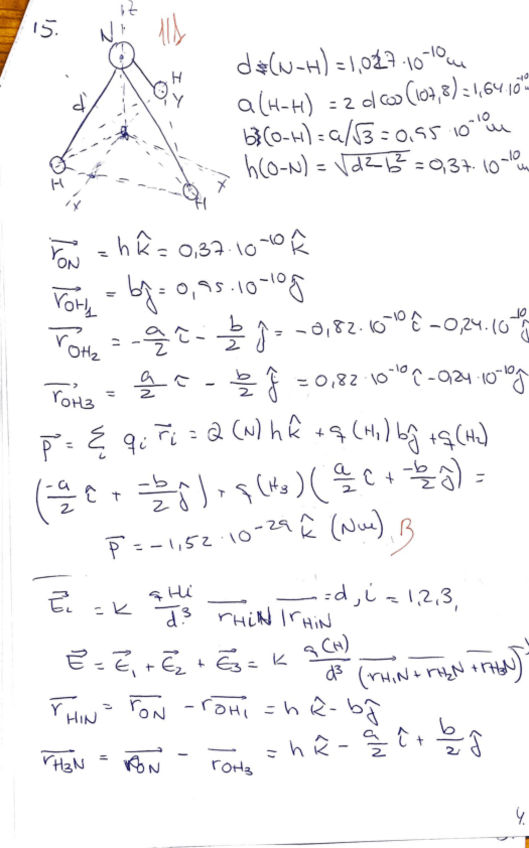 15.
z
N
H
Y
d
H
H
X
X
d (N-H) = 1,027·10⁻¹⁰ m
a (H-H) = 2 d cos (107,8) = 1,64·10⁻¹⁰
b (O-H) = a/√3 = 0,95·10⁻¹⁰ m
h (O-N) = √(d²-b²) = 0,37·10⁻¹⁰ m
r⃗_ON = h k̂ = 0,37·10⁻¹⁰ k̂
r⃗_OH₁ = b ĵ = 0,95·10⁻¹⁰ ĵ
r⃗_OH₂ = -a/2 î - b/2 ĵ = -0,82·10⁻¹⁰ î - 0,24·10⁻¹⁰ ĵ
r⃗_OH₃ = a/2 î - b/2 ĵ = 0,82·10⁻¹⁰ î - 0,24·10⁻¹⁰ ĵ
p⃗ = Σᵢ qᵢ r⃗ᵢ = Q (N) h k̂ + q (H₁) b ĵ + q (H₂)
(-a/2 î + -b/2 ĵ) + q (H₃) (a/2 î + -b/2 ĵ) =
p⃗ = -1,52·10⁻²⁹ k̂ (Nm) B
E⃗ᵢ = k qHi/d³ r⃗_HiN |r⃗_HiN = d, i = 1,2,3,
E⃗ = E⃗₁ + E⃗₂ + E⃗₃ = k q(H)/d³ (r⃗_H₁N + r⃗_H₂N + r⃗_H₃N)
r⃗_H₁N = r⃗_ON - r⃗_OH₁ = h k̂ - b ĵ
r⃗_H₃N = r⃗_ON - r⃗_OH₃ = h k̂ - a/2 î + b/2 ĵ
4.